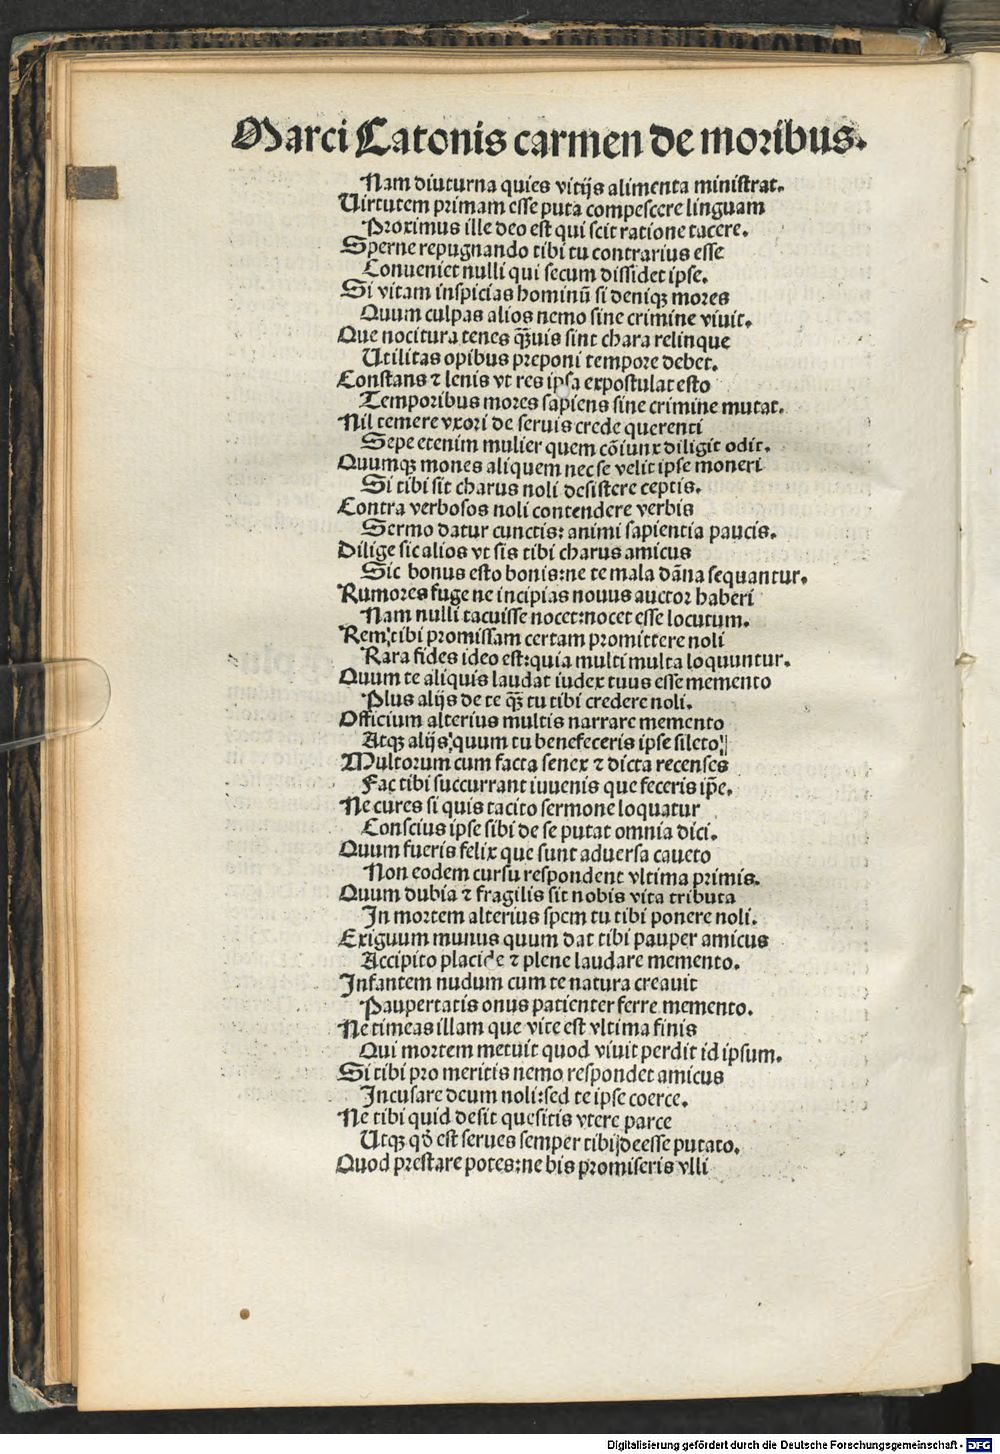 Marci Catonis carmen de moribus.
Nam diuturna quies vitijs alimenta ministrat.
Uirtutem primam esse puta compescere linguam
Proximus ille deo est qui scit ratione tacere.
Sperne repugnando tibi tu contrarius esse
Conueniet nulli qui secum dissidet ipse.
Si vitam inspicias hominū si deniqꝫ mores
Quum culpas alios nemo sine crimine viuit.
Que nocitura tenes qᷓꝫuis sint chara relinque
Utilitas opibus preponi tempore debet.
Constans ⁊ lenis vt res ipsa expostulat esto
Temporibus mores sapiens sine crimine mutat.
Nil temere vxori de seruis crede querenti
Sepe etenim mulier quem cōiunx diligit odit.
Quumqꝫ mones aliquem nec se velit ipse moneri
Si tibi sit charus noli desistere ceptis.
Contra verbosos noli contendere verbis
Sermo datur cunctis: animi sapientia paucis.
Dilige sic alios vt sis tibi charus amicus
Sic bonus esto bonis:ne te mala dāna sequantur.
Rumores fuge ne incipias nouus auctor haberi
Nam nulli tacuisse nocet:nocet esse locutum.
Rem tibi promissam certam promittere noli
Rara fides ideo est:quia multi multa loquuntur.
Quum te aliquis laudat iudex tuus esse memento
Plus alijs de te qᷓꝫ tu tibi credere noli.
Officium alterius multis narrare memento
Atqꝫ alijs quum tu benefeceris ipse sileto
Multorum cum facta senex ⁊ dicta recenses
Fac tibi succurrant iuuenis que feceris ip̄e.
Ne cures si quis tacito sermone loquatur
Conscius ipse sibi de se putat omnia dici.
Quum fueris felix que sunt aduersa caueto
Non eodem cursu respondent vltima primis.
Quum dubia ⁊ fragilis sit nobis vita tributa
In mortem alterius spem tu tibi ponere noli.
Exiguum munus quum dat tibi pauper amicus
Accipito placide ⁊ plene laudare memento.
Infantem nudum cum te natura creauit
Paupertatis onus patienter ferre memento.
Ne timeas illam que vite est vltima finis
Qui mortem metuit quod viuit perdit id ipsum.
Si tibi pro meritis nemo respondet amicus
Incusare deum noli:sed te ipse coerce.
Ne tibi quid desit quesitis vtere parce
Utqꝫ qđ est serues semper tibi deesse putato.
Quod prestare potes:ne bis promiseris vlli
Digitalisierung gefördert durch die Deutsche Forschungsgemeinschaft - DFG